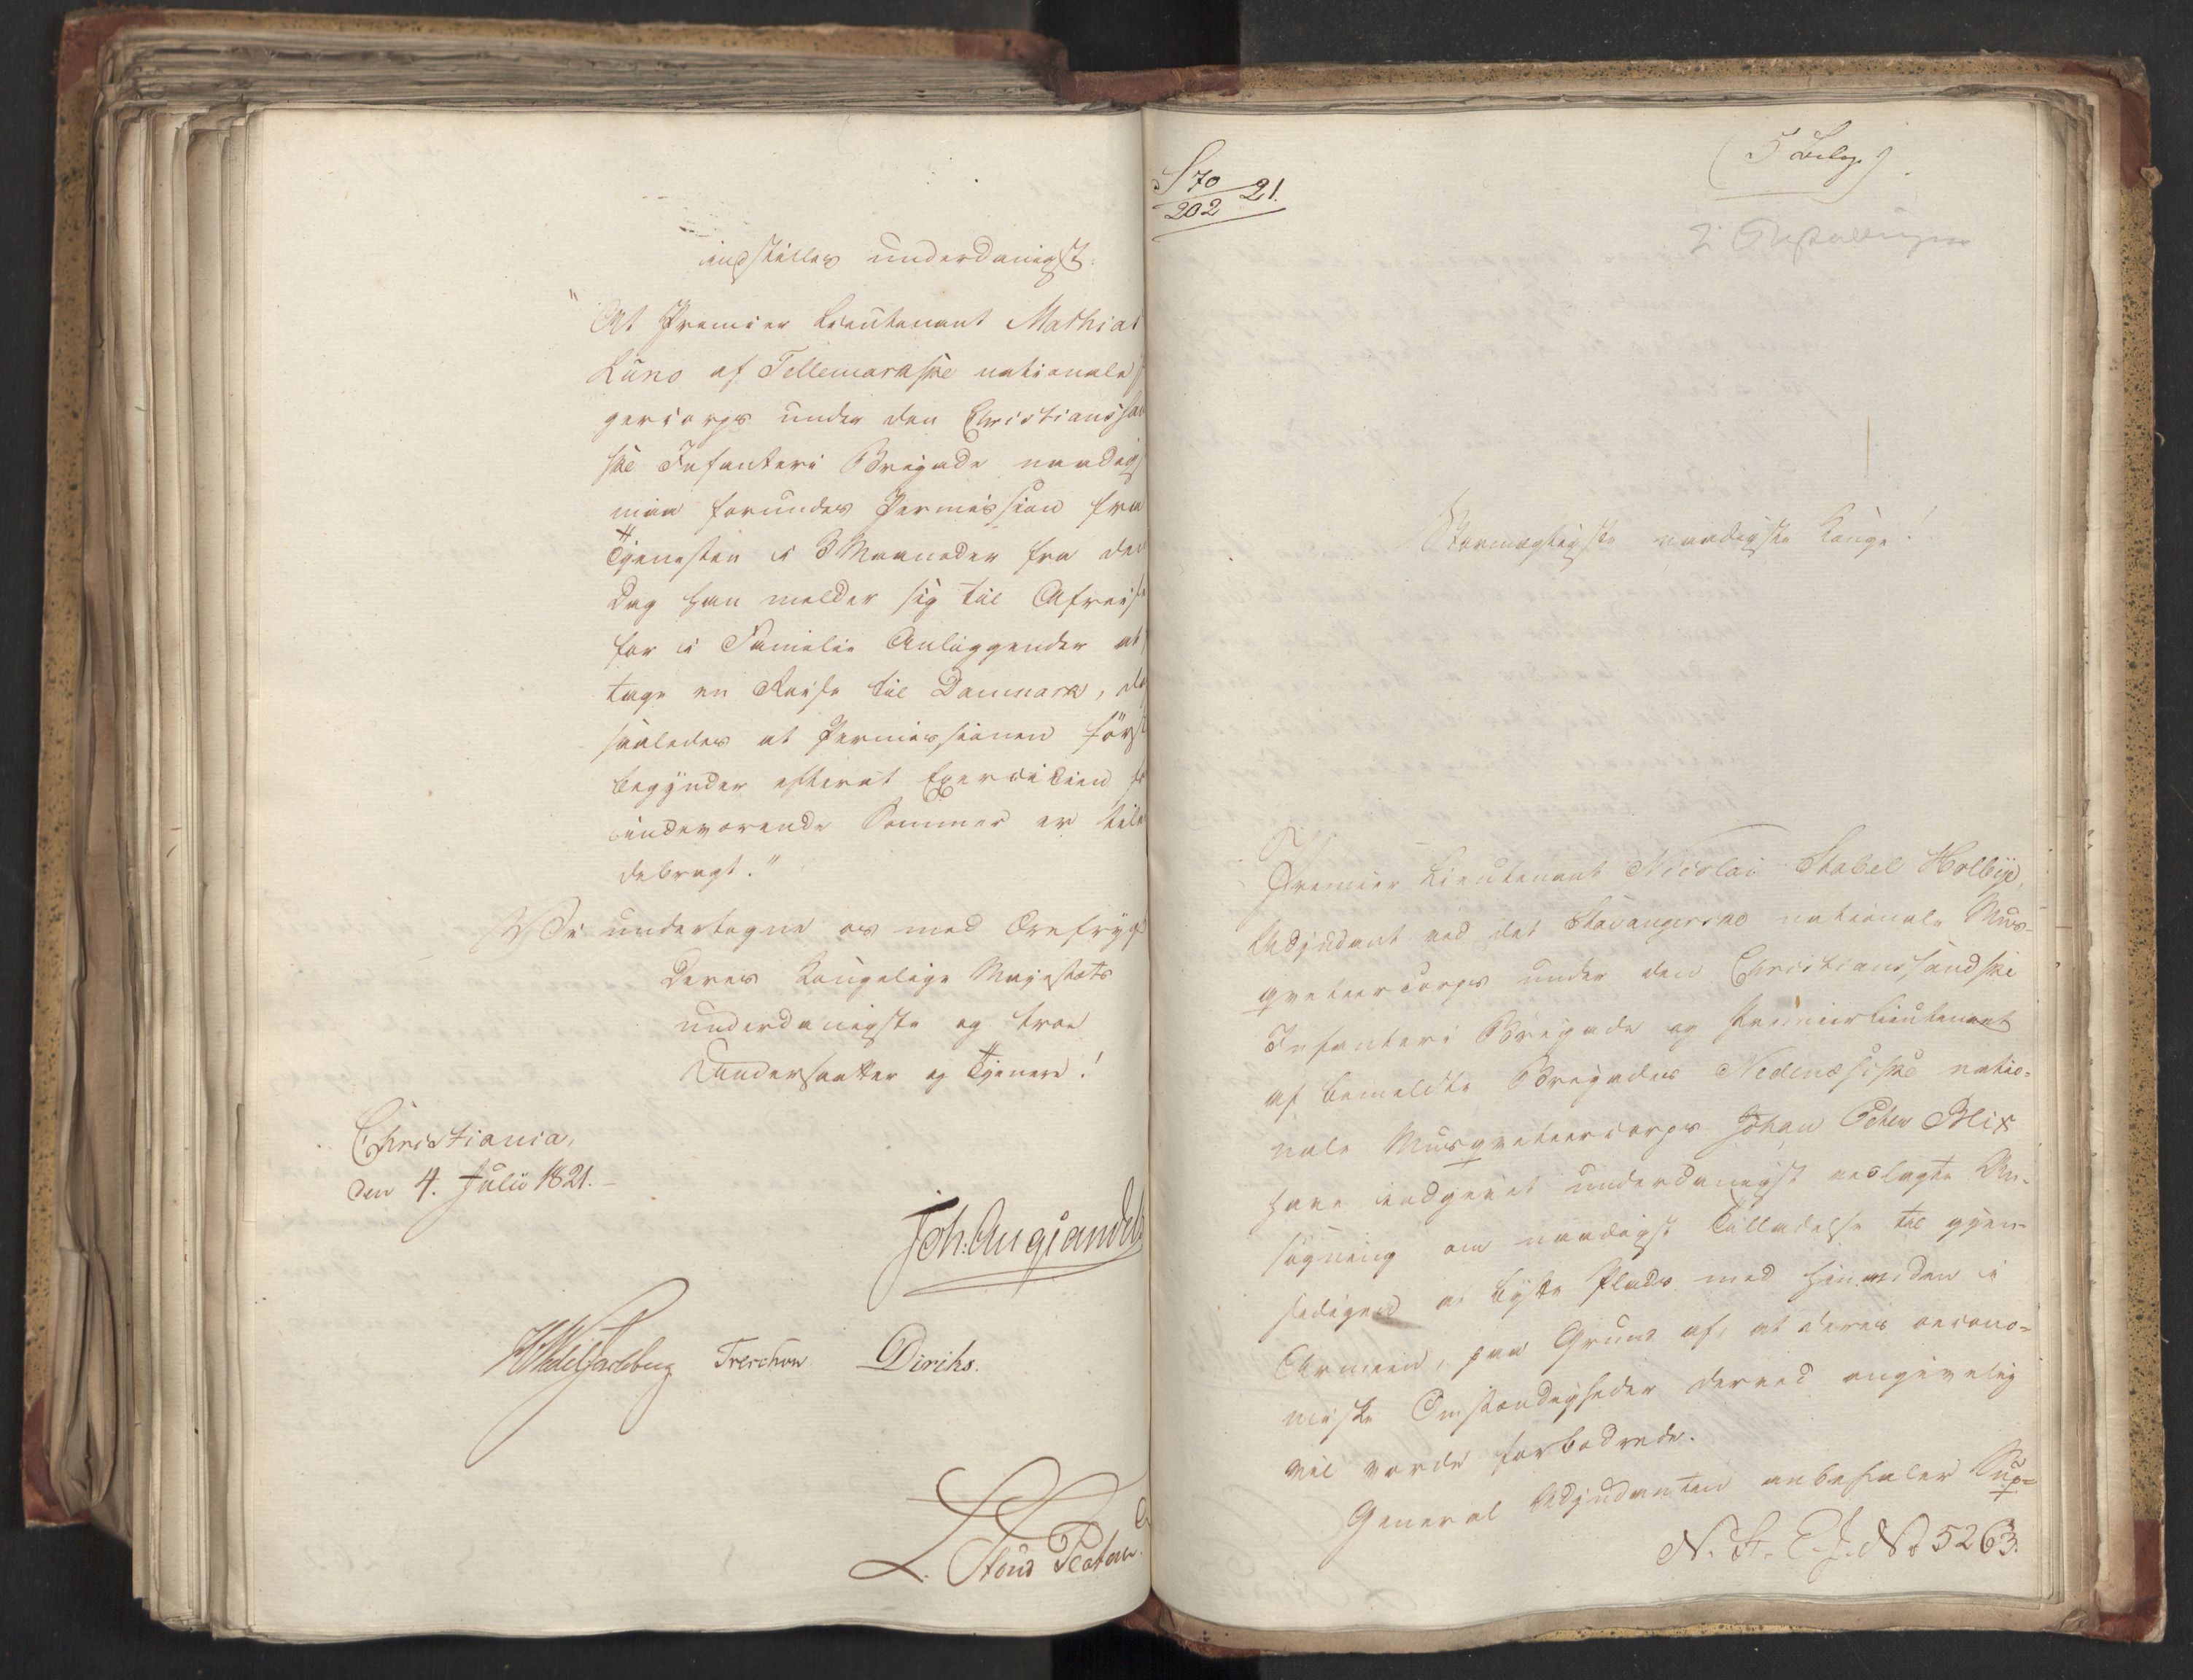 indstilles underdanigst:
"At Premier Lieutenant Mathias
Lüno af Tellemarkske nationale
gercorps under den Christianssan
ske Infanteri Brigade naadigst
maa forundes Permission fra
Tjenesten i 3 Maaneder fra den
Dag han melder sig til Afreise
for i Familie Anliggender at
tage en Reise til Danmark, dog
saaledes at Permissionen först
begynder efterat Exercitien
indeværende Sommer er tilen
debragt."
Vi undertegne os med Ærefrygt
Deres Kongelige Majestæts
underdanigste og troe
Undersaatter og Tjenere!
Christiania,
den 4. Julii 1821.-
Joh: Aug: Sandels
HWedelJarlsberg Treschow Diriks.
L. Stoud Platou
S 70/202 21.
(5 Bilag)
2 Afskedigelser
Stormægtigste naadigste Konge!
Premier Lieutenant Nicolai Stabel Holbye,
Adjudant ved det Stavangerske nationale Mus-
qveteercorps under den Christianssandske
Infanteri Brigade og Premierlieutenant
af bemeldte Brigades Nedenæsiske natio-
nale Musqveteercorps Johan Peter Blix
have indgivet underdanigst vedlagte An-
søgning om naadigst Tilladelse til gjen-
sidigen at bytte Plads med hinanden i
Armeen, paa Grund af, at deres oecono-
miske Omstændigheder derved angivelig
vil vorde forbedrede.
General Adjudanten anbefaler Sup-
N. St. E. J. No 5263.